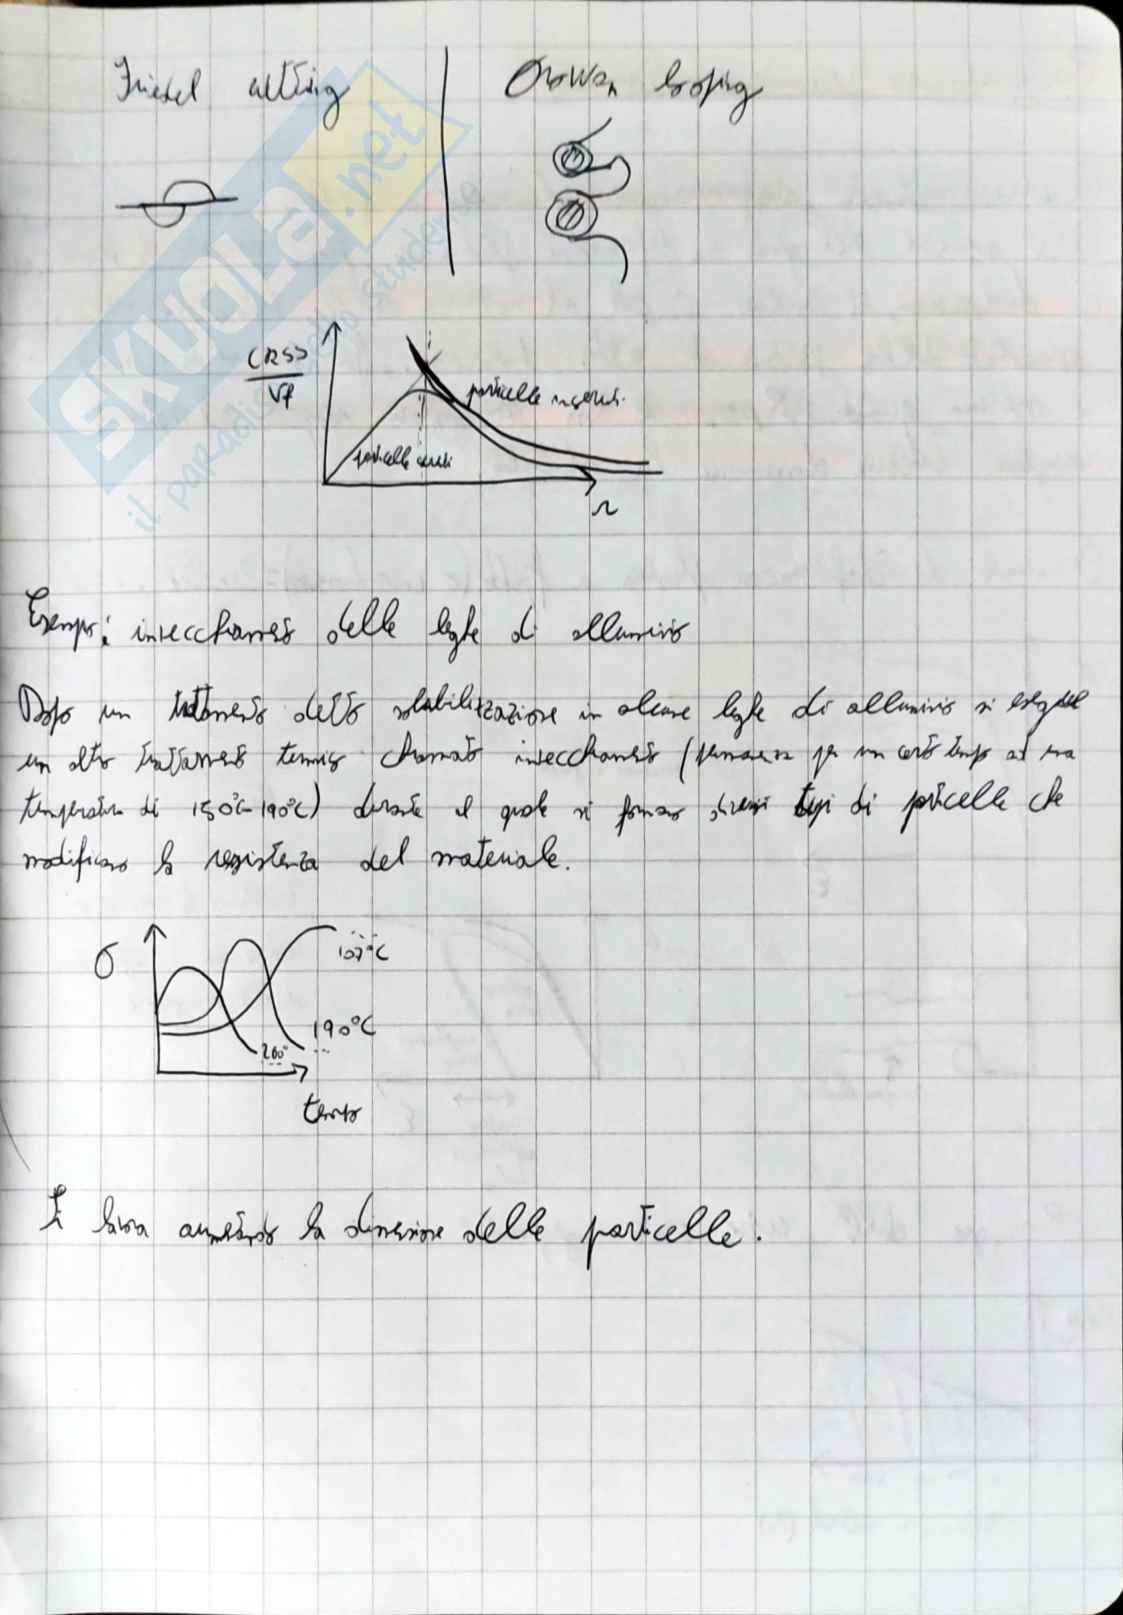 Friedel cutting
Orowan looping
SKUOLA.net
il paradiso dello studente
CRSS
√f
particelle
particelle
r
Esempi: invecchiamento delle leghe di alluminio
Dopo un trattamento detto solubilizzazione in alcune leghe di alluminio si esegue
un altro trattamento termico chiamato invecchiamento (permanenza per un certo tempo ad una
temperatura di 150°C-190°C) durante il quale si formano diversi tipi di particelle che
modificano la resistenza del materiale.
σ
107°C
190°C
260°
tempo
Si lavora aumentando la dimensione delle particelle.